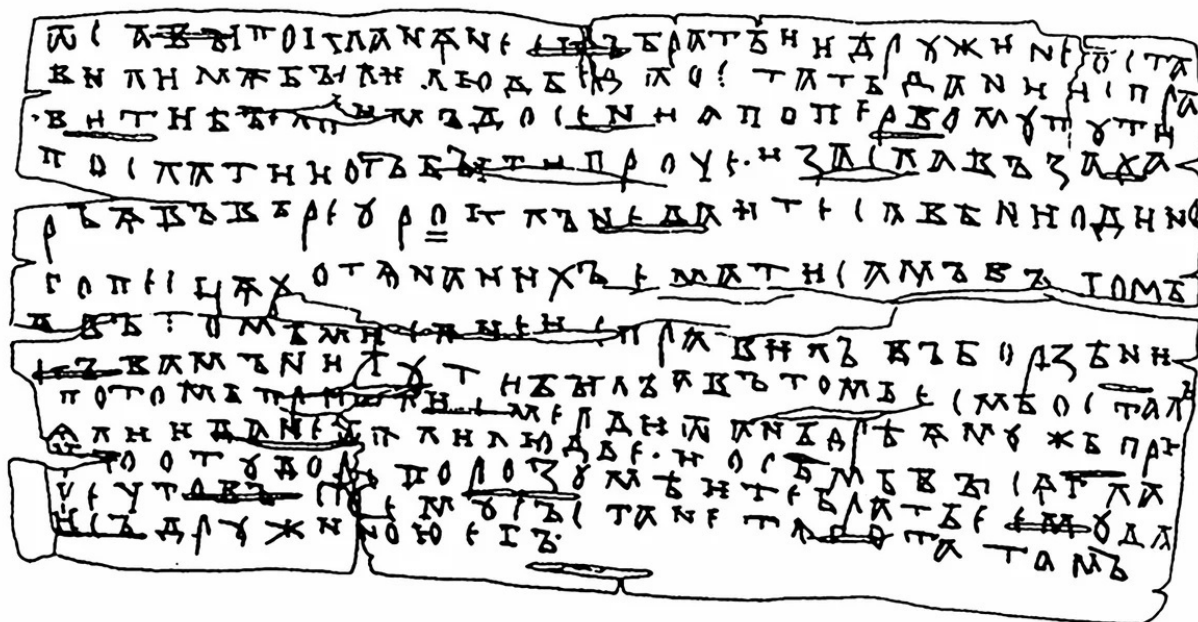 ѿ савъі покланѧнее къ братьи и дружине оста
вили мѧ бъіли людье да ос тать дани исправ
ити бъіло имъ досени а поперьвому пути
послати и отъбъіти проче· и заславъ заха
рьѧ въ вѣре уроклъ не даите савѣ ни одино
го песцѧ хотѧ на нихъ емати самъ въ томь
а въ томь ми сѧ не исправилъ въ борзѣ ни
къ вамъ ни ту ти бъілъ а въ томь есмь осталъ
потомь пришли смерди ѿ аньдрѣѧ мужь при
ѧли и дане ѿѧли людье· и осьмь въісѧгла
что о тудорѣ порозумѣите братье ему да
че ут о въ сь ему състане тѧ гота тамъ
и съ дружиною егъ·